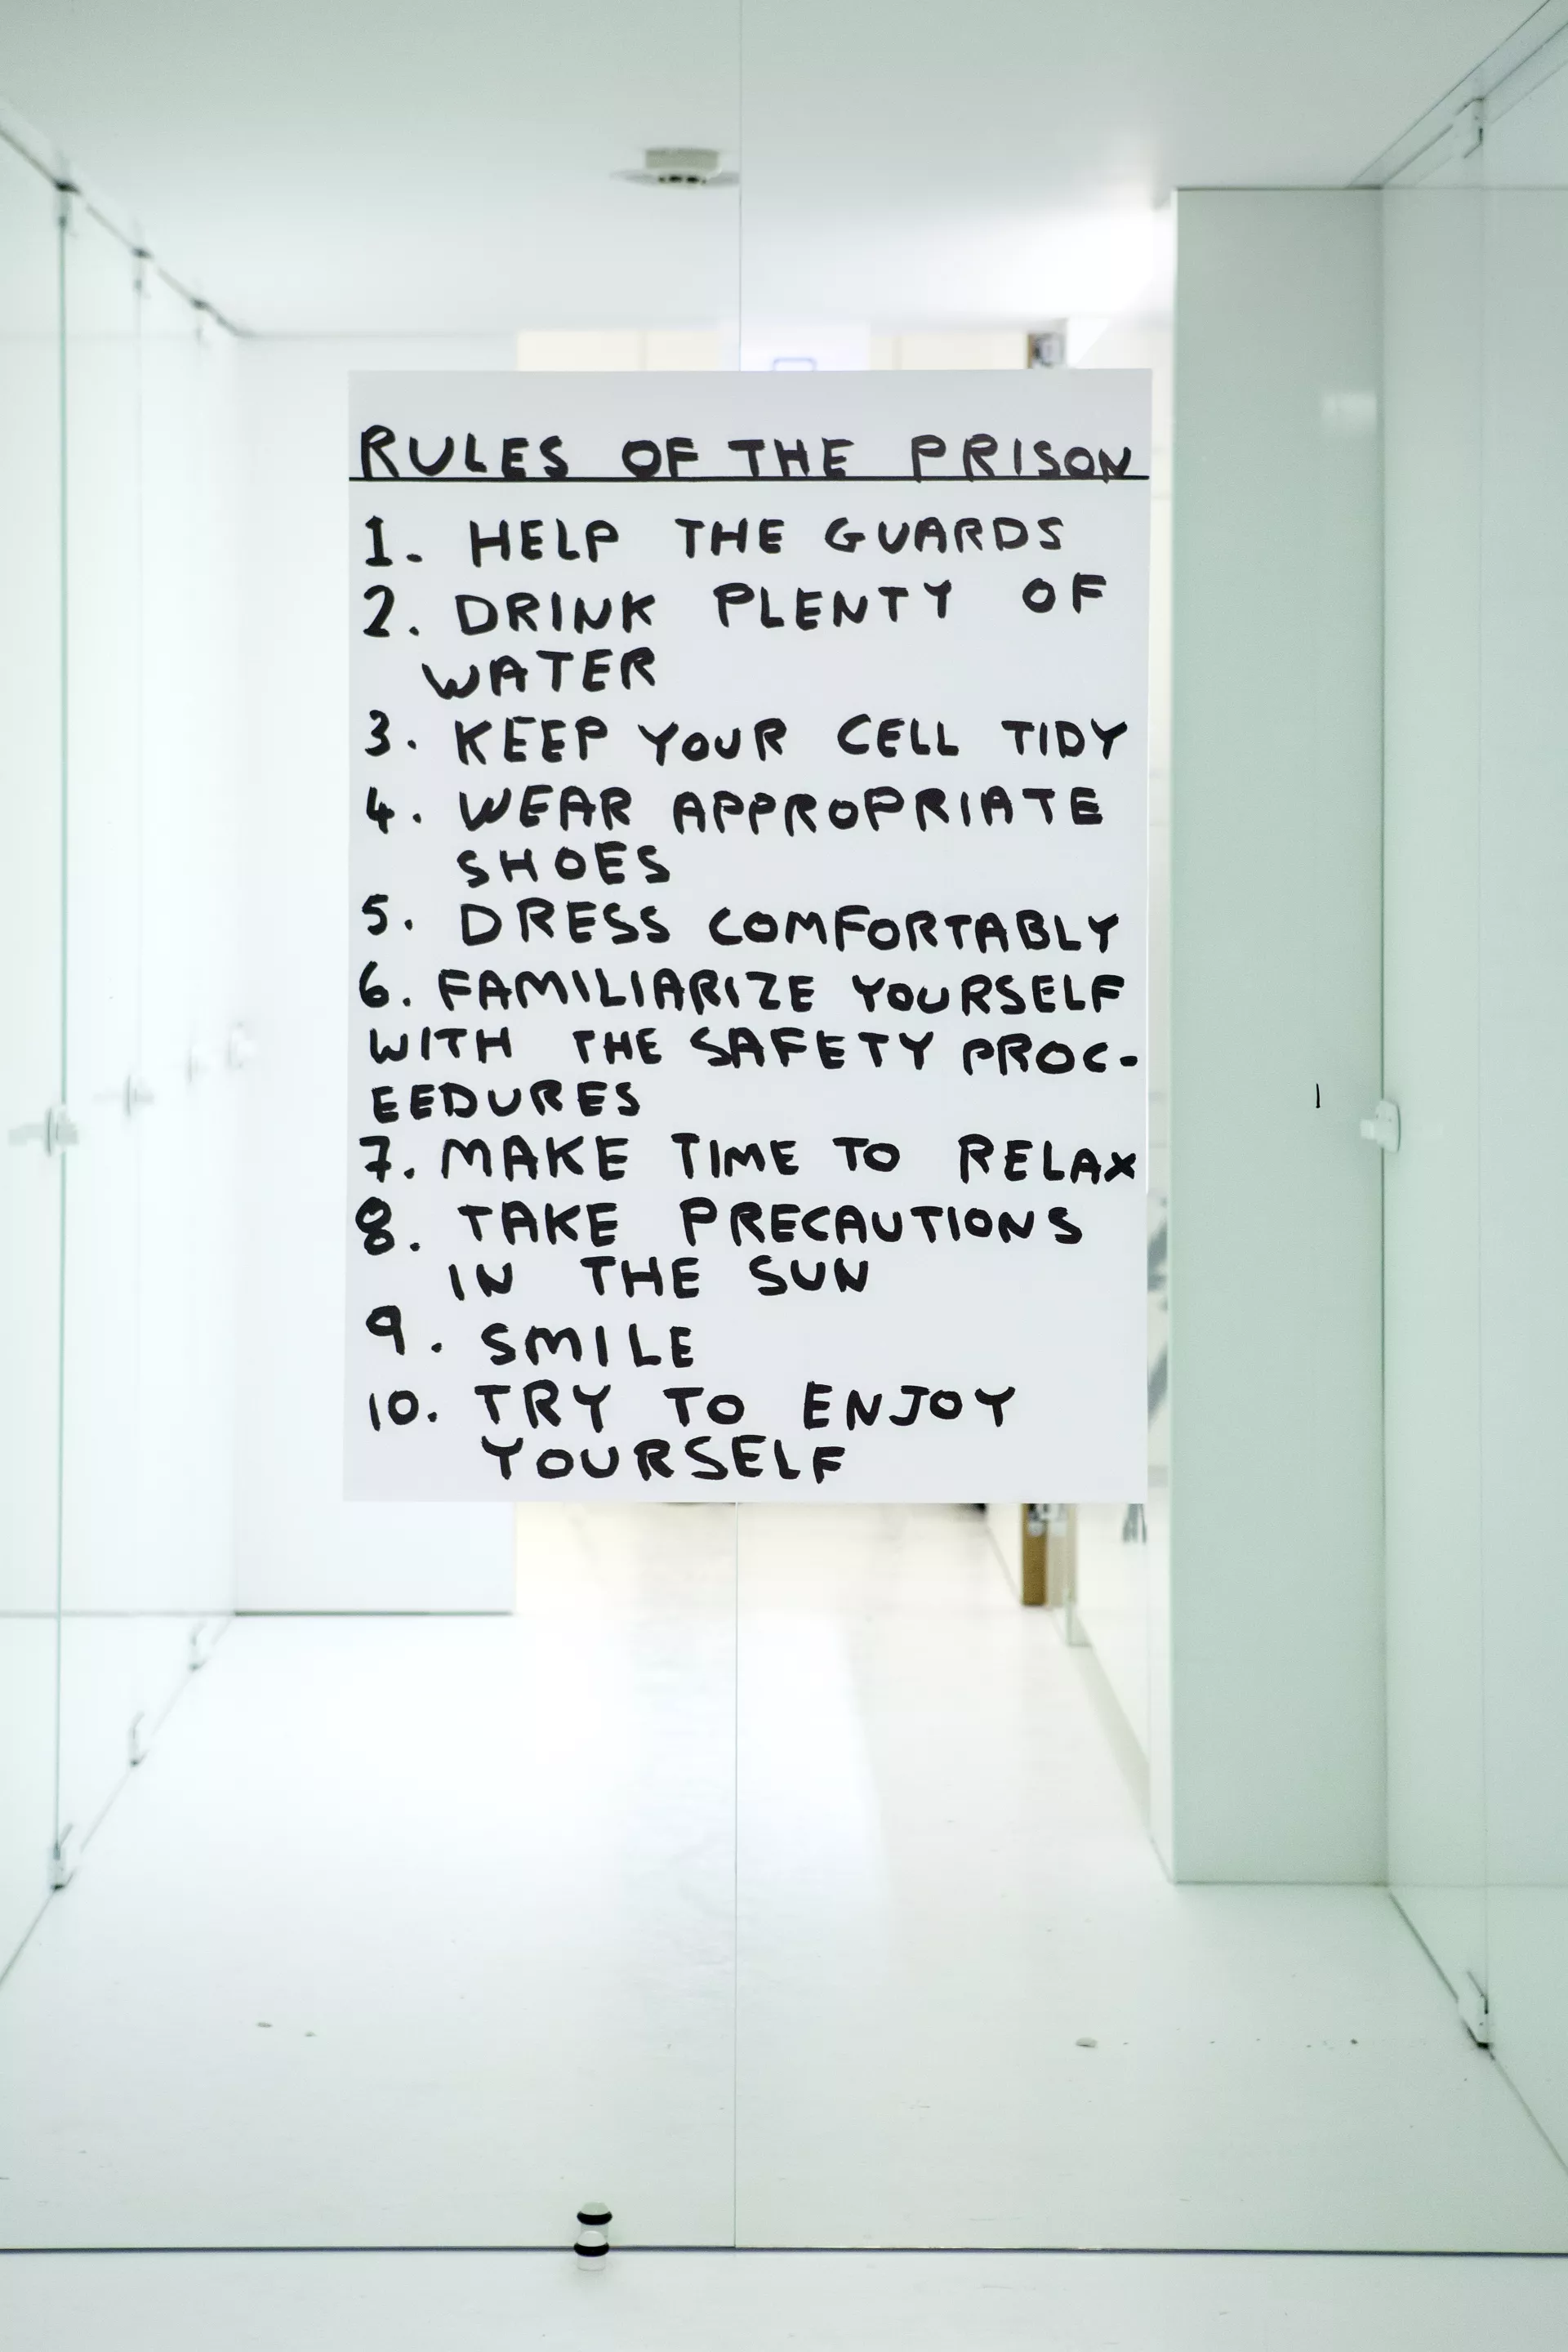 RULES OF THE PRISON
1. HELP THE GUARDS
2. DRINK PLENTY OF
WATER
3. KEEP YOUR CELL TIDY
4. WEAR APPROPRIATE
SHOES
5. DRESS COMFORTABLY
6. FAMILIARIZE YOURSELF
WITH THE SAFETY PROC-
EEDURES
7. MAKE TIME TO RELAX
8. TAKE PRECAUTIONS
IN THE SUN
9. SMILE
10. TRY TO ENJOY
YOURSELF